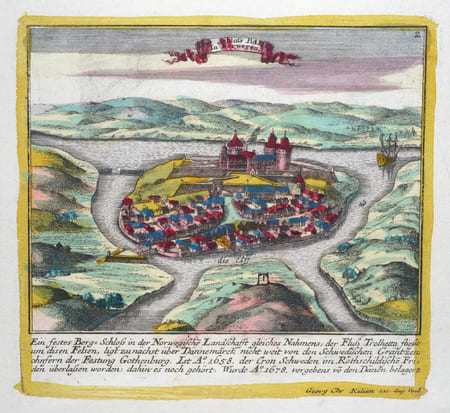 2
In Norwegen
die Elff
Ein festes Berg-Schloß in der Norwegische Landschafft gleiches Nahmens; der Fluß Trolhetta fließt
um disen Felsen, ligt zunächst über Dannemarck nicht weit von den Schwedischen Gräntzen
ohnfern der Festung Gothenburg. Ist Aº. 1658. der Cron Schweden im Röthschildische Fri-
den überlassen worden: dahin es noch gehört. Wurde Aº. 1678. vergebens võ den Dänen belagert.
Georg Chr Kilian exc. Aug. Vind.